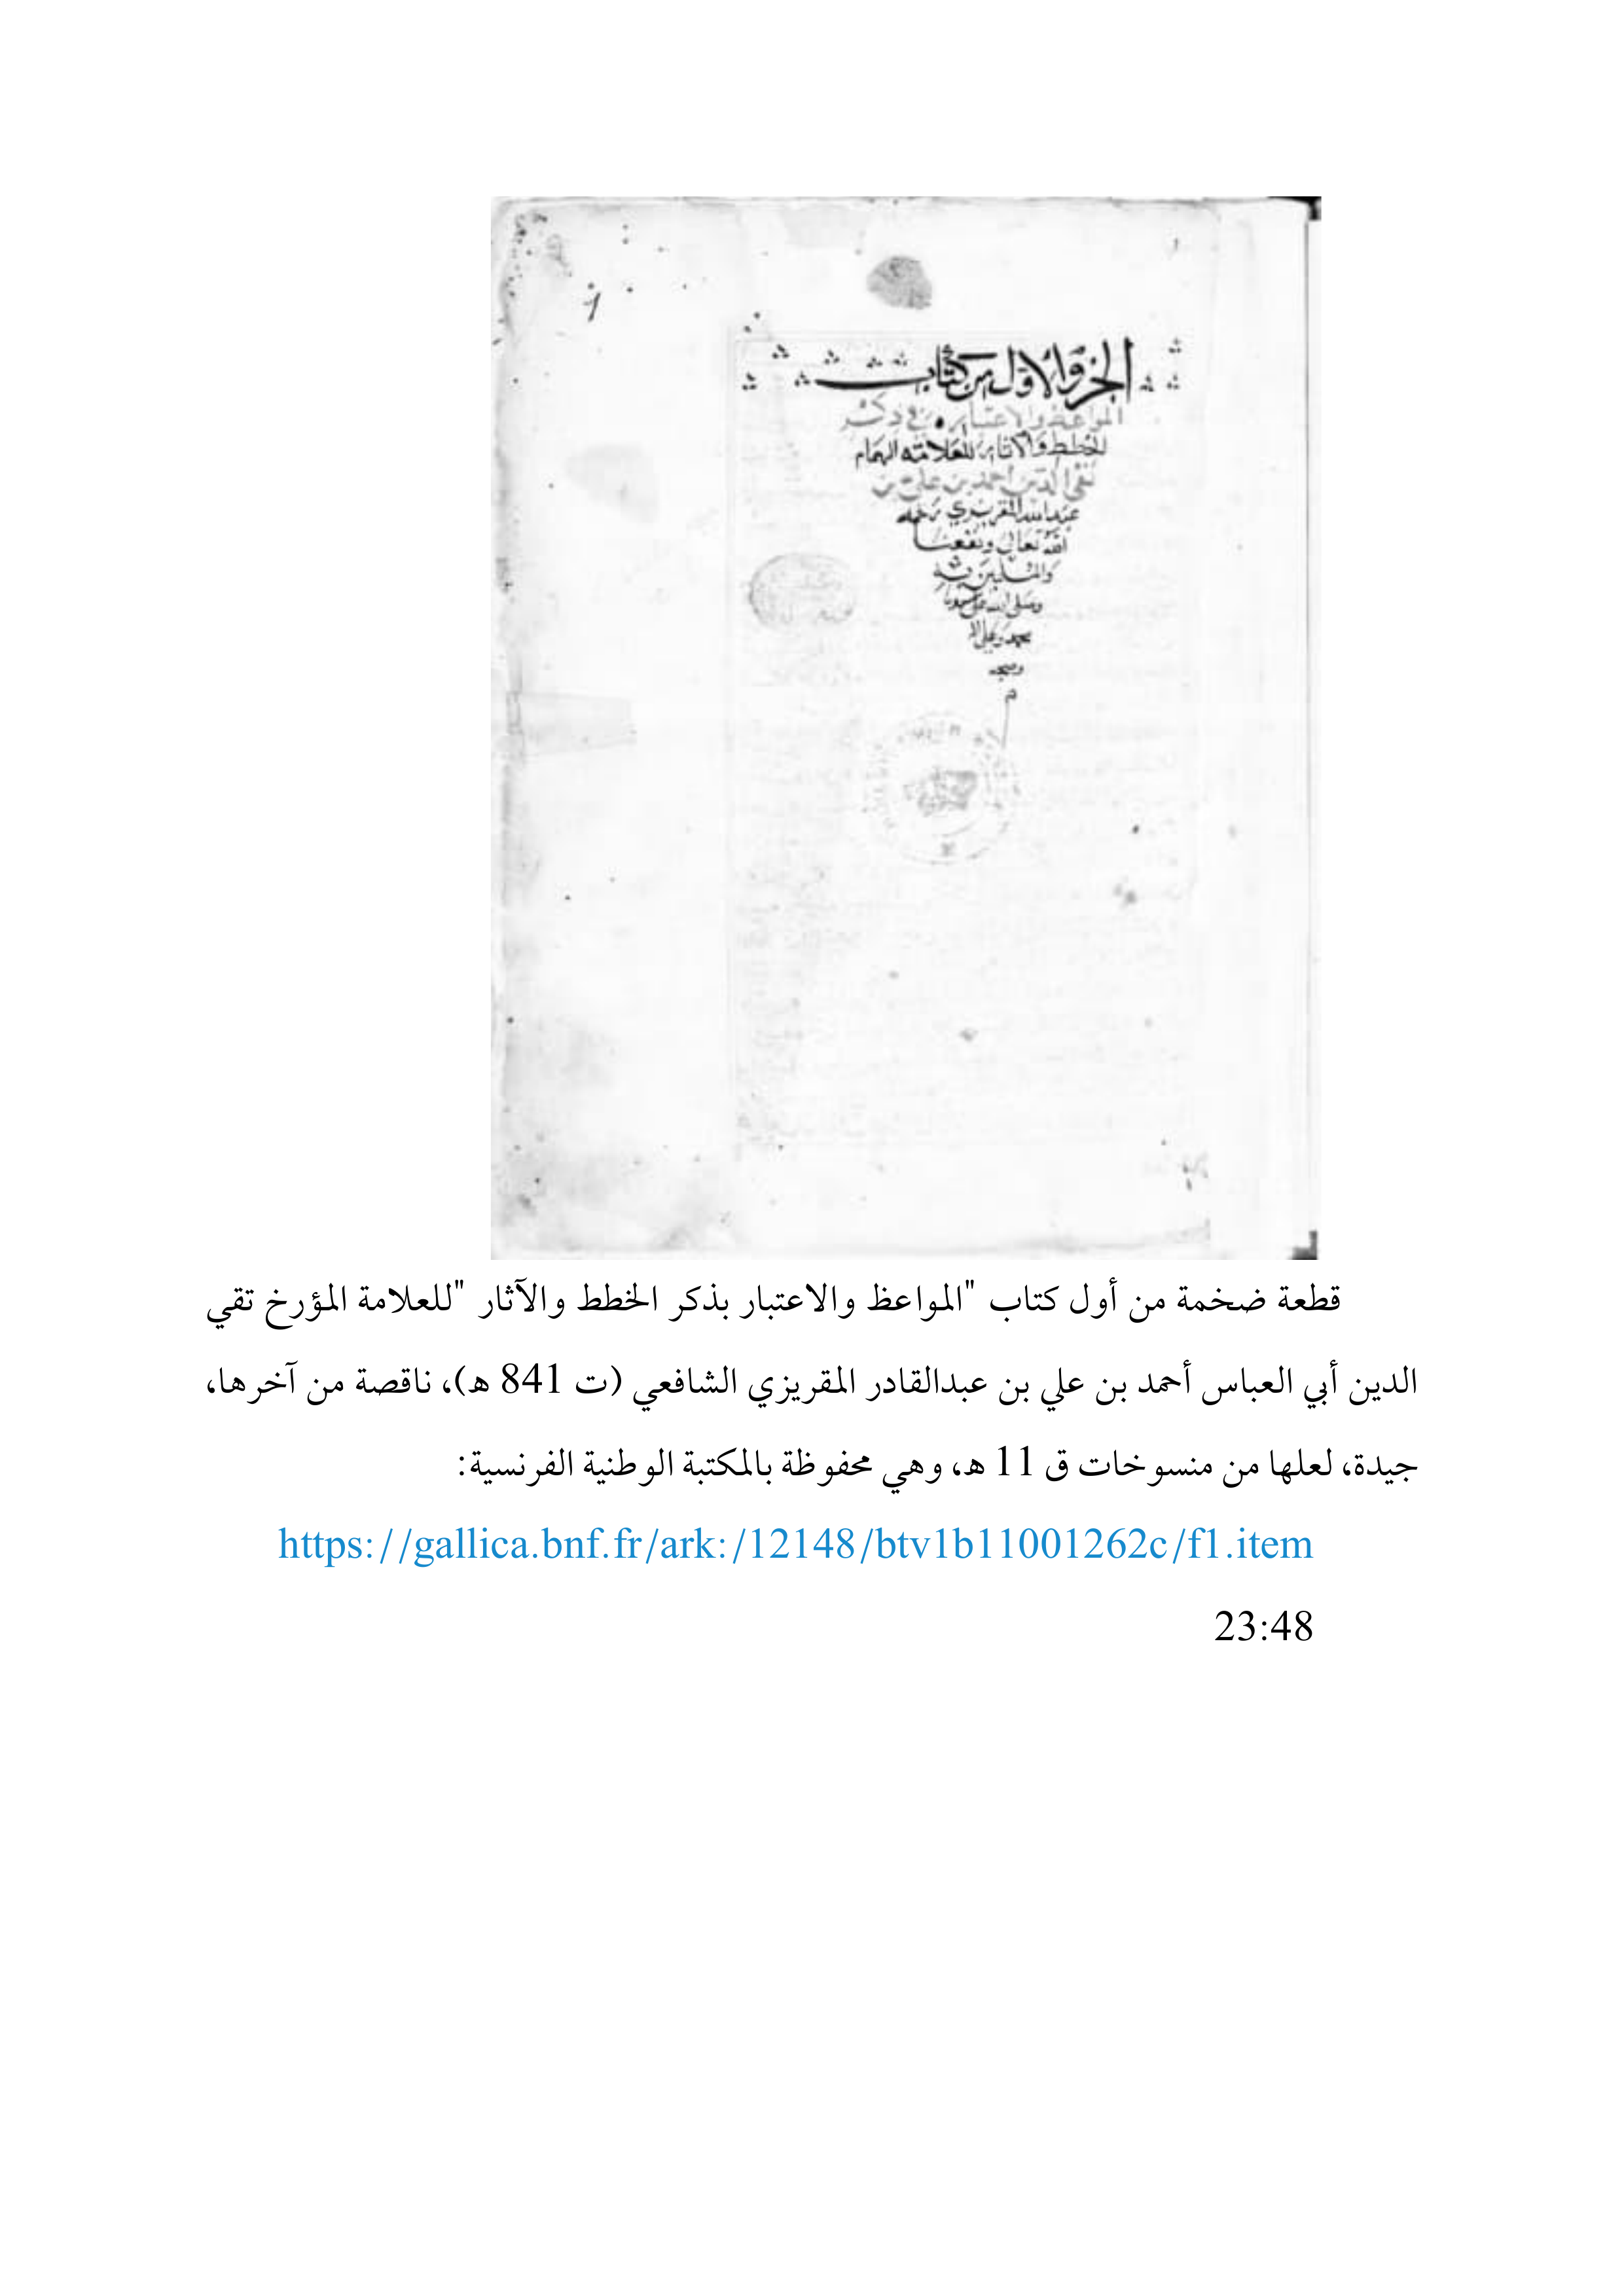 الجزو الاول من كتاب
المواعظ والاعتبار في ذكر
الخطط والاثار للعلامة الهمام
تقي الدين احمد بن علي بن
عبد الله المقريزي رحمه
الله تعالى ونفعنا
والمسلمين به
وصلى الله على سيدنا
محمد وعلى اله
وصحبه
م
قطعة ضخمة من أول كتاب "المواعظ والاعتبار بذكر الخطط والآثار "للعلامة المؤرخ تقي
الدين أبي العباس أحمد بن علي بن عبدالقادر المقريزي الشافعي (ت 841 ه)، ناقصة من آخرها،
جيدة، لعلها من منسوخات ق 11 ه، وهي محفوظة بالمكتبة الوطنية الفرنسية:
https://gallica.bnf.fr/ark:/12148/btv1b11001262c/f1.item
23:48